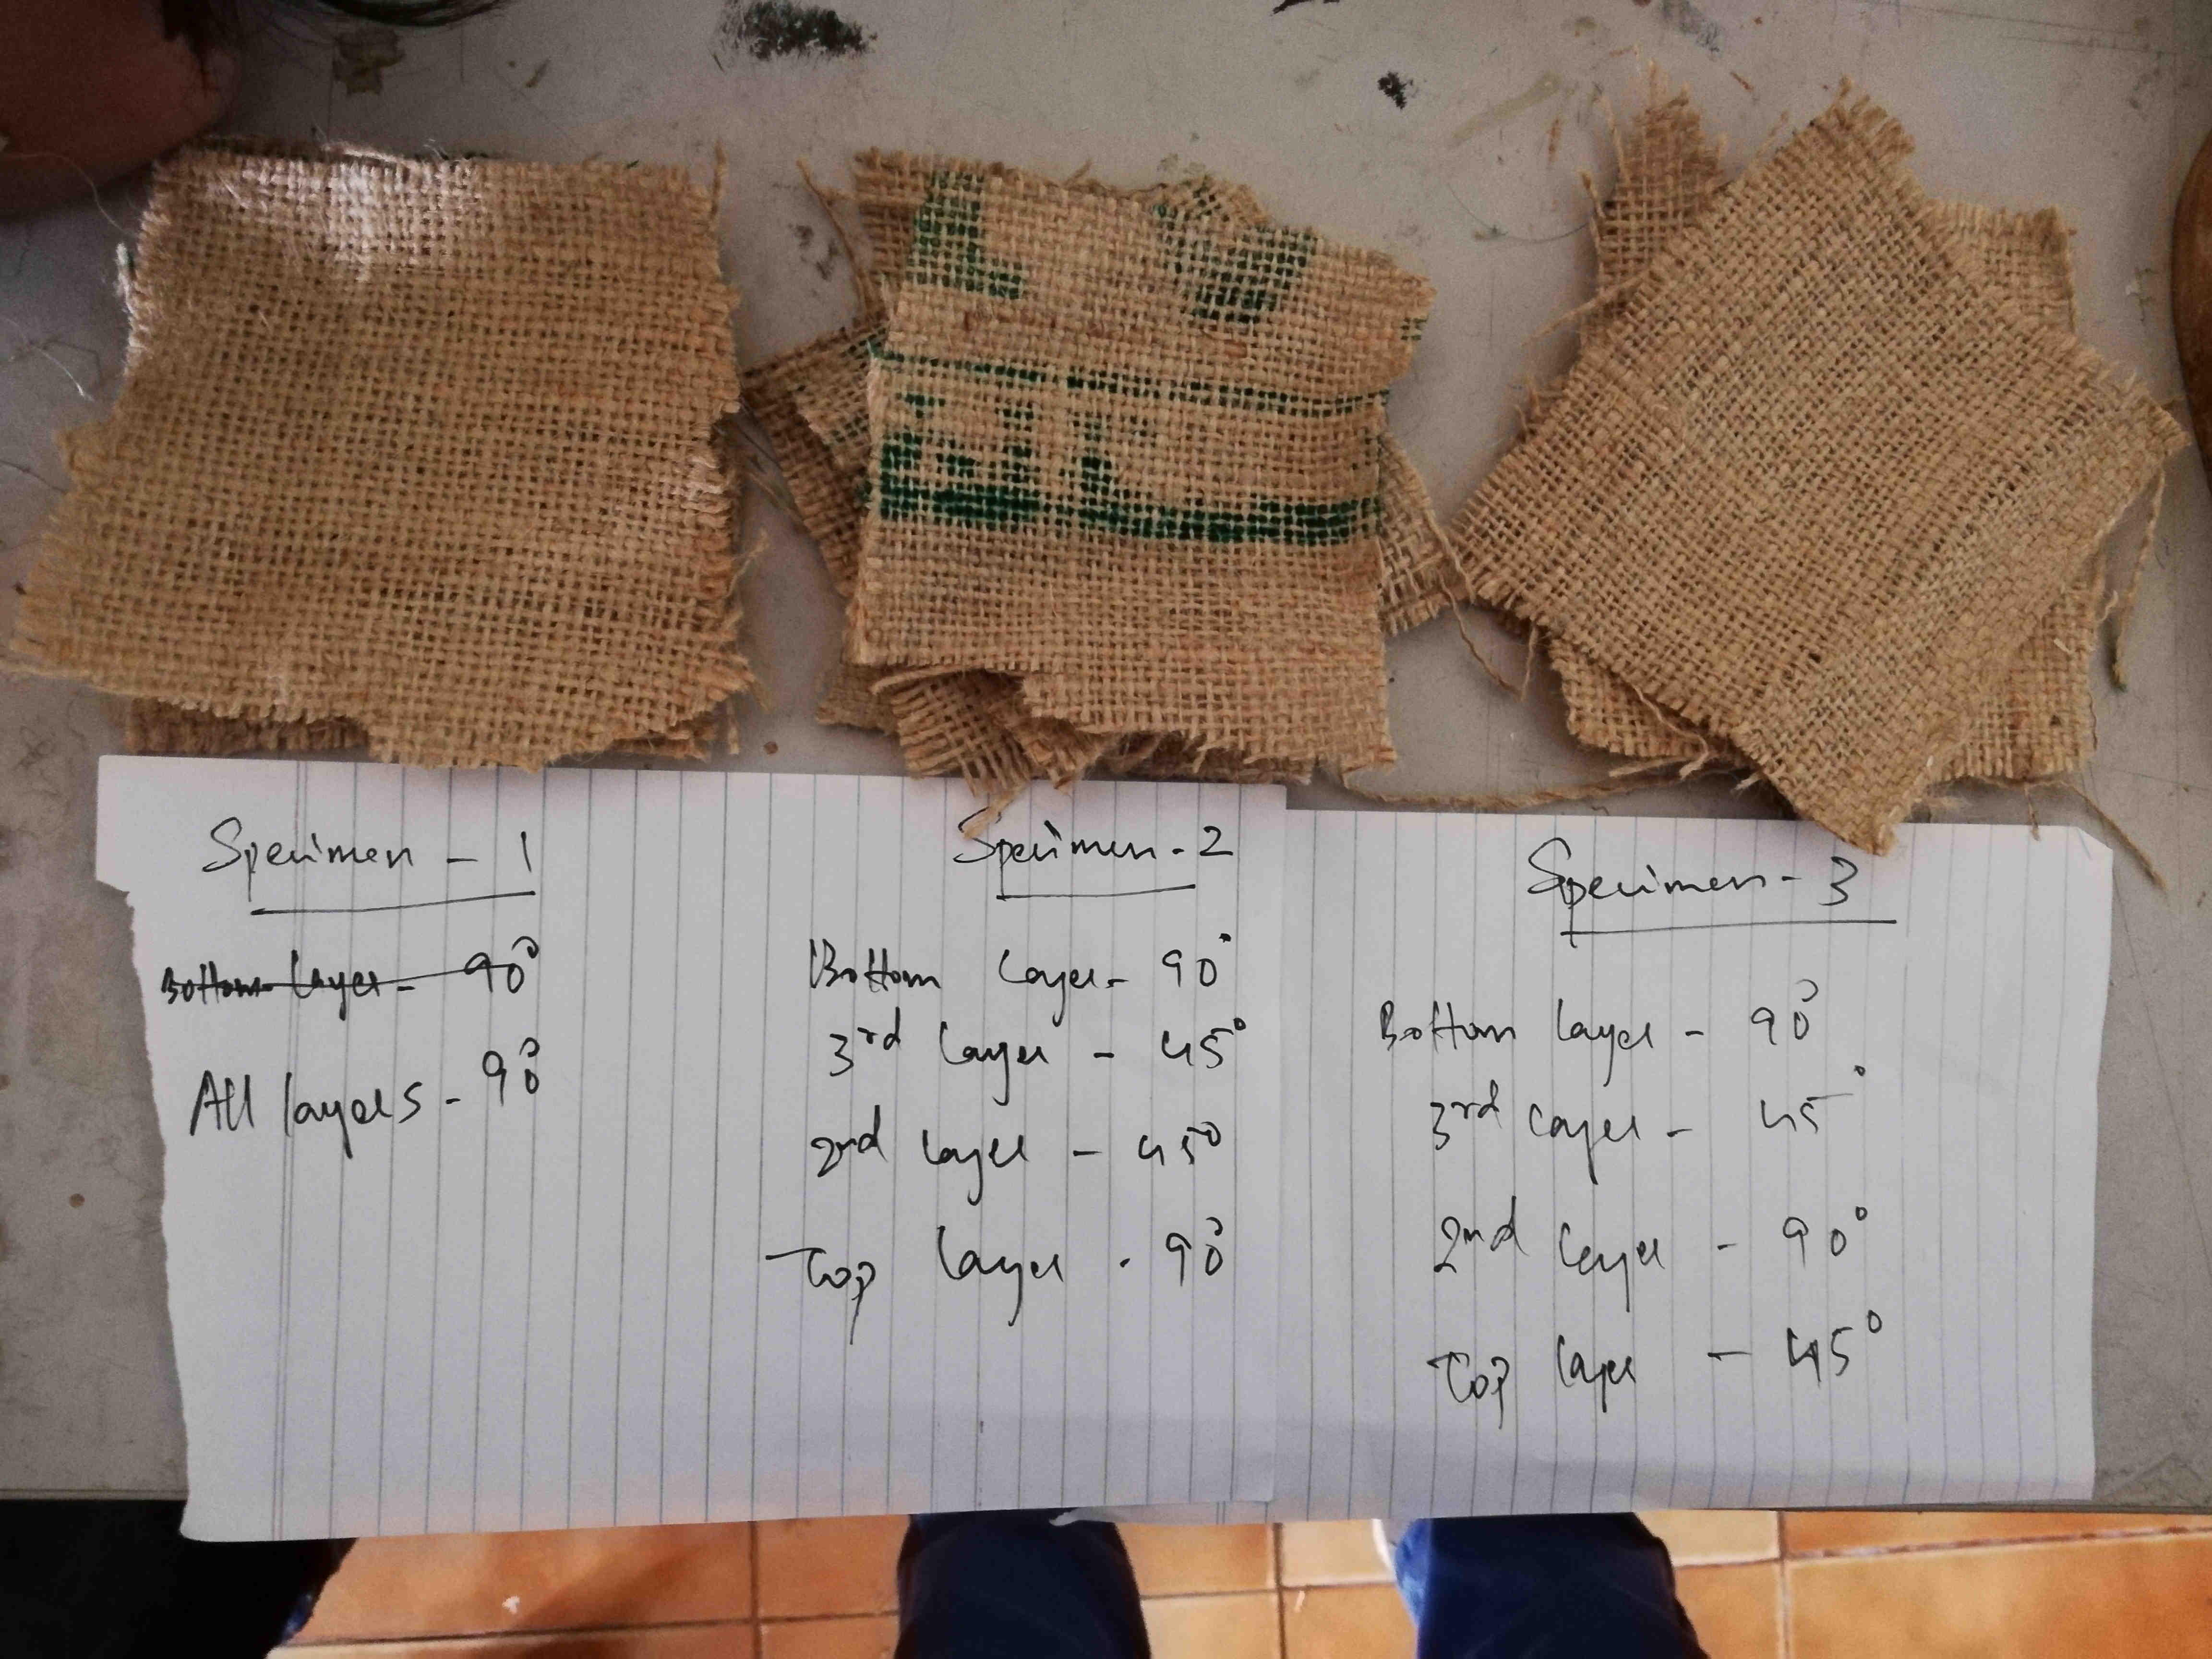 Specimen - 1
Bottom layer - 90°
All layers - 90°
Specimen - 2
Bottom layer - 90°
3rd layer - 45°
2nd layer - 45°
Top layer - 90°
Specimen - 3
Bottom layer - 90°
3rd layer - 45°
2nd layer - 90°
Top layer - 45°